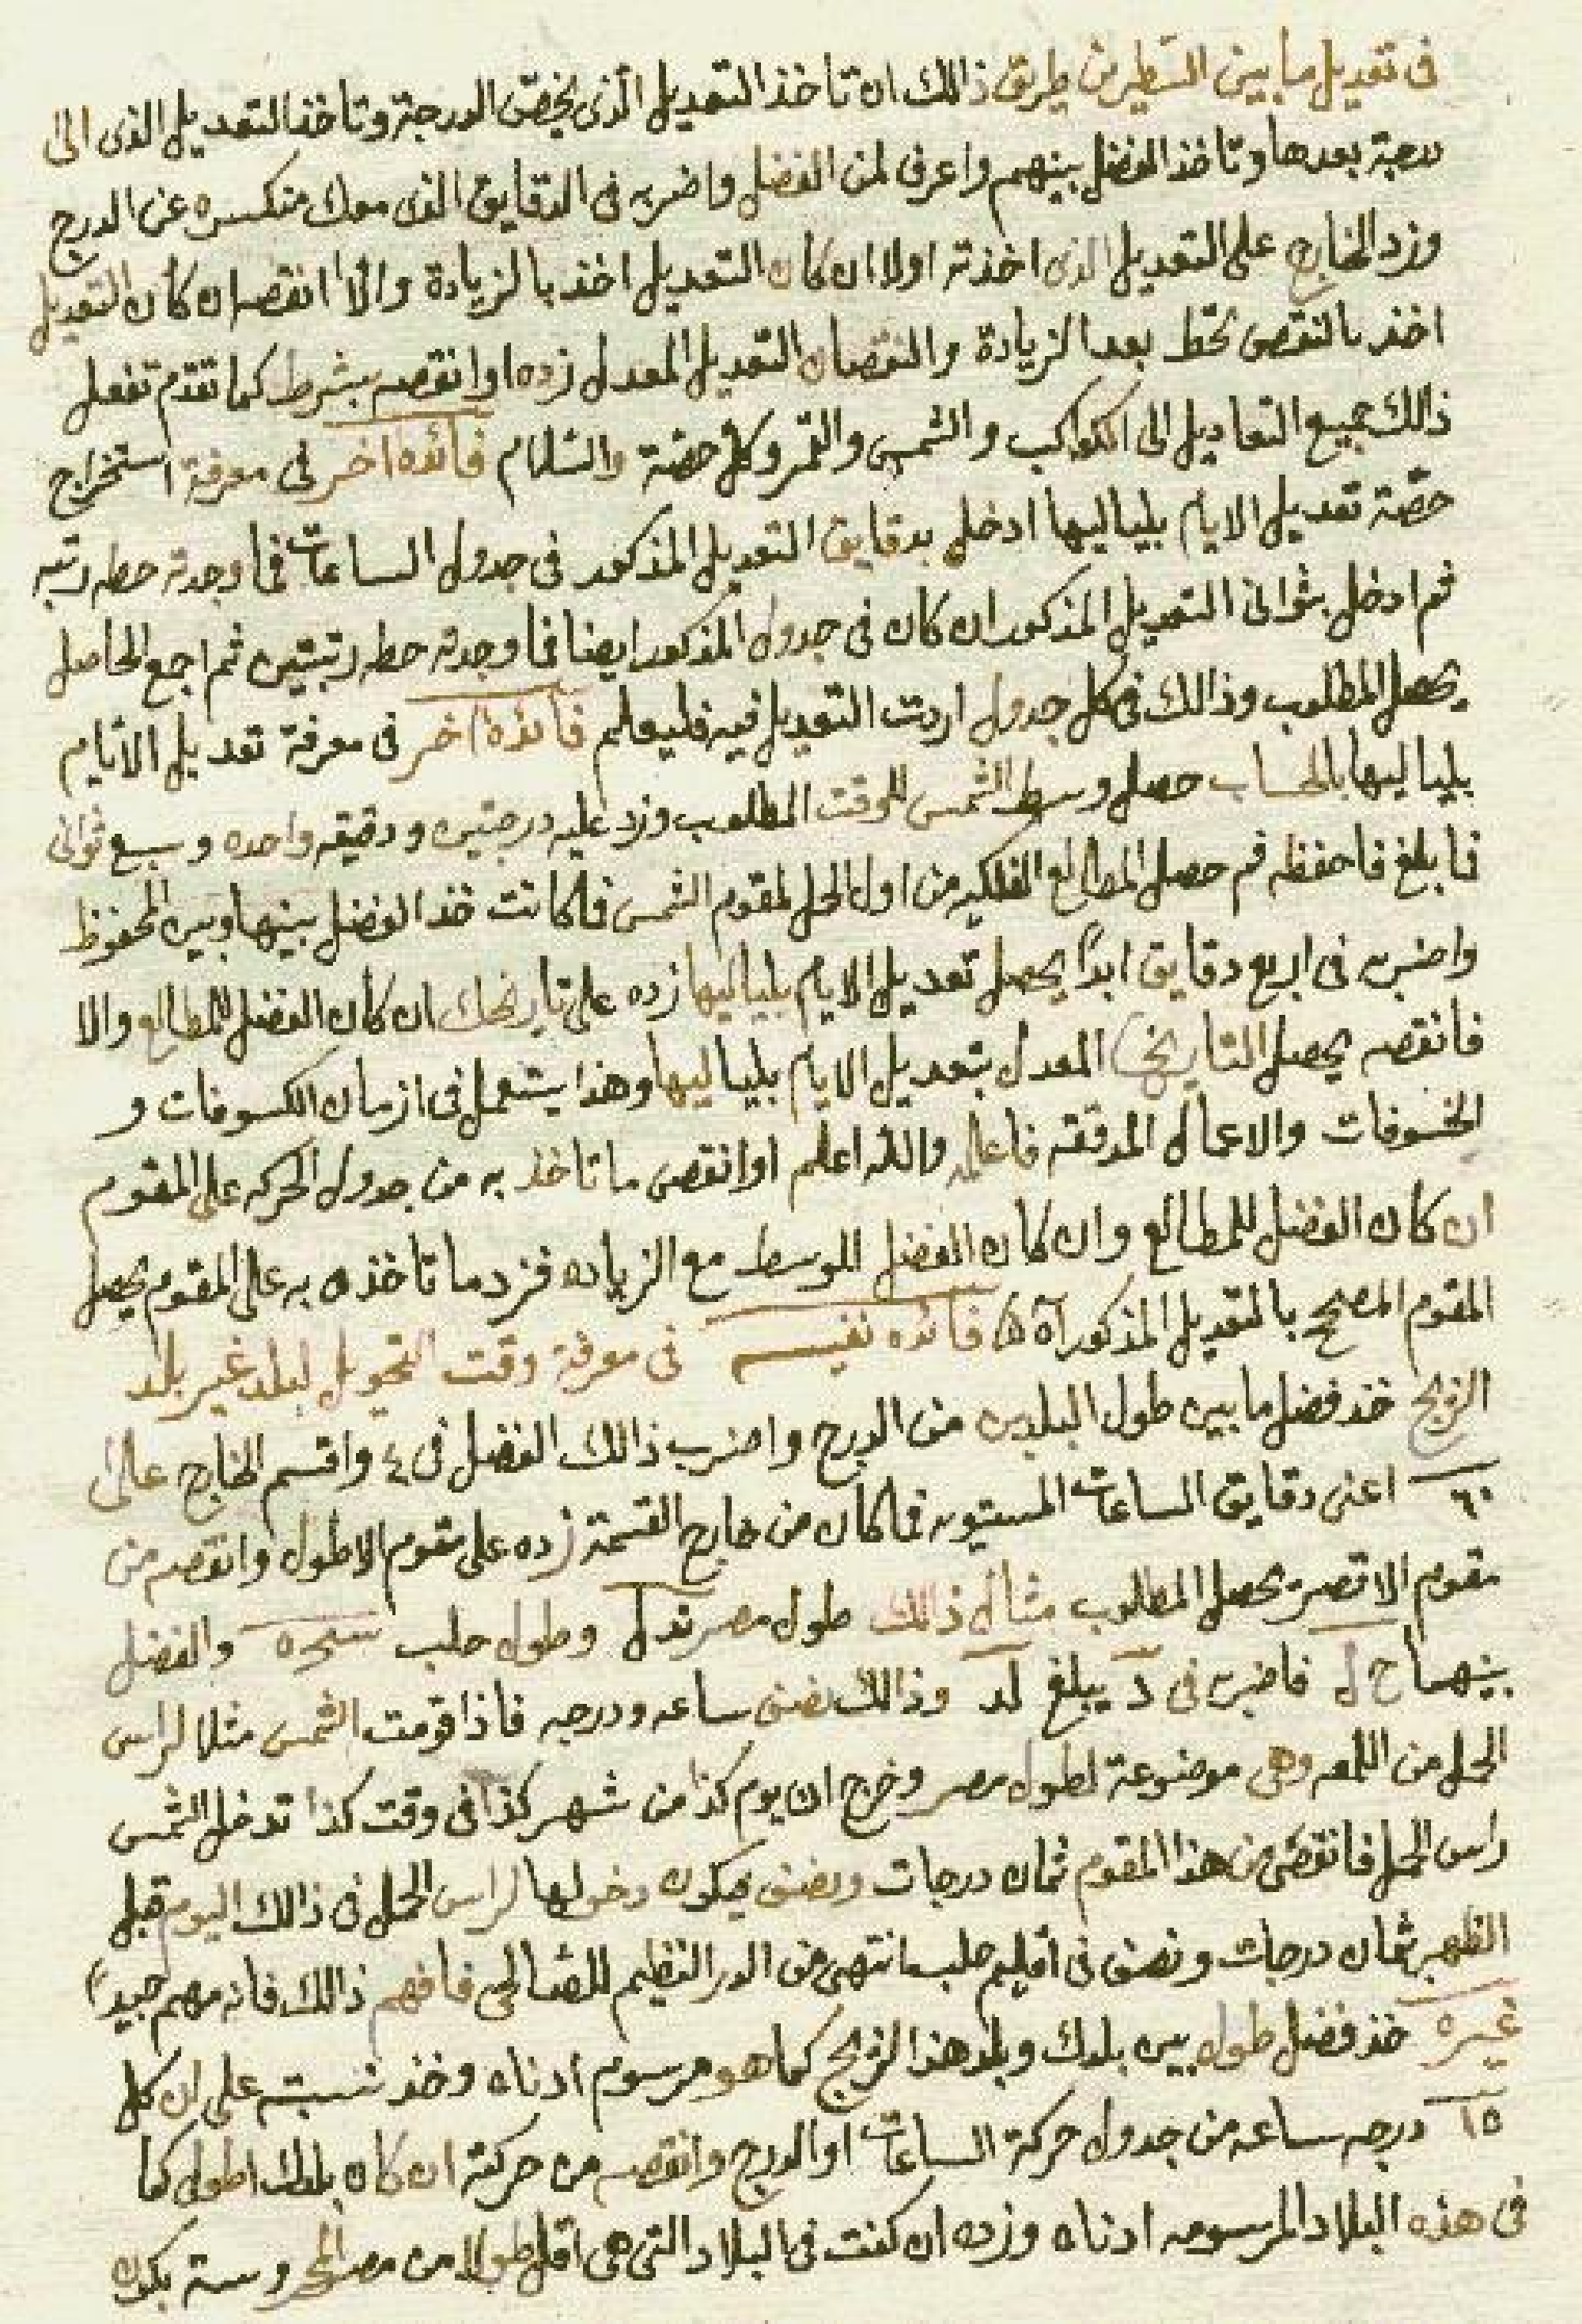 فى تعديل ما بين السطرين طريق ذالك ان تاخذ التعديل الذى يخصّ الدرجة وتاخذ التعديل الذى الى
درجة بعدها وتاخذ الفضل بينهم واعرف لمن الفضل واضربه فى الدقايق الذى معك منكسره عن الدرج
وزد الخارج على التعديل الذى اخذته اولا ان كان التعديل اخذ بالزيادة والا انقصه ان كان التعديل
اخذ بالنقص تحط بعد الزيادة والنقصان التعديل المعدل زده او انقصه بشرط كما تقدم تفعل
ذالك جميع التعاديل الى الكواكب والشمس والقمر وكل حصّة والسّلام فائده اخر فى معرفة استخراج
حصّة تعديل الايام بلياليها ادخل بدقايق التعديل المذكور فى جدول الساعات فما وجدته حطه رتبه
ثم ادخل بثوانى التعديل المذكور ان كان فى جدول المذكور ايضا فما وجدته حطه رتبتين ثم اجمع الحاصل
يحصل المطلوب وذالك فى كل جدول اردت التعديل فيه فليعلم فائدة اخر فى معرفة تعديل الأيام
بلياليها بالحساب حصل وسط الشمس للوقت المطلوب وزد عليه درجتين ودقيقه واحده وسبع ثوانى
فما بلغ فاحفظه ثم حصل المطالع الفلكيه من اول الحمل لمقوم الشمس فما كانت خذ الفضل بينها وبين المحفوظ
واضربه فى اربع دقايق ابدًا يحصل تعديل الايام بلياليها زده على تاريخك ان كان الفضل للمطالع والا
فانقصه يحصل التاريخ المعدل بتعديل الايام بلياليها وهذا يستعمل فى ازمان الكسوفات و
الخسوفات والاعمال المدققه فاعلمه والله اعلم او انقص ما تاخذ به من جدول الحركه على المقوم
ان كان الفضل للمطالع وان كان الفضل للوسط مع الزياده فزد ما تاخذه به على المقوم يحصل
المقوم المصحح بالتعديل المذكور اه فائده نفيسه فى معرفة وقت التحويل لبلد غير بلد
الزيج خذ فضل ما بين طول البلدين من الدرج واضرب ذالك الفضل فى ٤ واقسم الخارج على
٦٠ اعنى دقايق الساعات المستويه فما كان من خارج القسمة زده على مقوم الاطول وانقصه من
مقوم الاقصر يحصل المطلوب مثال ذالك طول مصر ند ل وطول حلب سحره والفضل
بينهما ح ل فاضربه فى د يبلغ لد وذالك نصف ساعه ودرجه فاذا قومت الشمس مثلا لراس
الحمل من اللمعه وهى موضوعة لطول مصر وخرج ان يوم كذا من شهر كذا فى وقت كذا تدخل الشمس
راس الحمل فانقص من هذا المقوم ثمان درجات ونصف يكون دخولها لراس الحمل فى ذالك اليوم قبل
الظهر بثمان درجات ونصف فى اقليم حلب انتهى من الدر النظيم للصالحى فافهم ذالك فانه مهم جيدًا
غيره خذ فضل طول بين بلدك وبلد هذا الزيج كما هو مرسوم ادناه وخذ نسبته على ان كل
١٥ درجه ساعه من جدول حركة الساعات او الدرج وانقصه من حركته ان كان بلدك اطول كما
فى هذه البلاد المرسومه ادناه وزده ان كنت فى البلاد التى هى اقل طولا من مصر المحروسة بكون